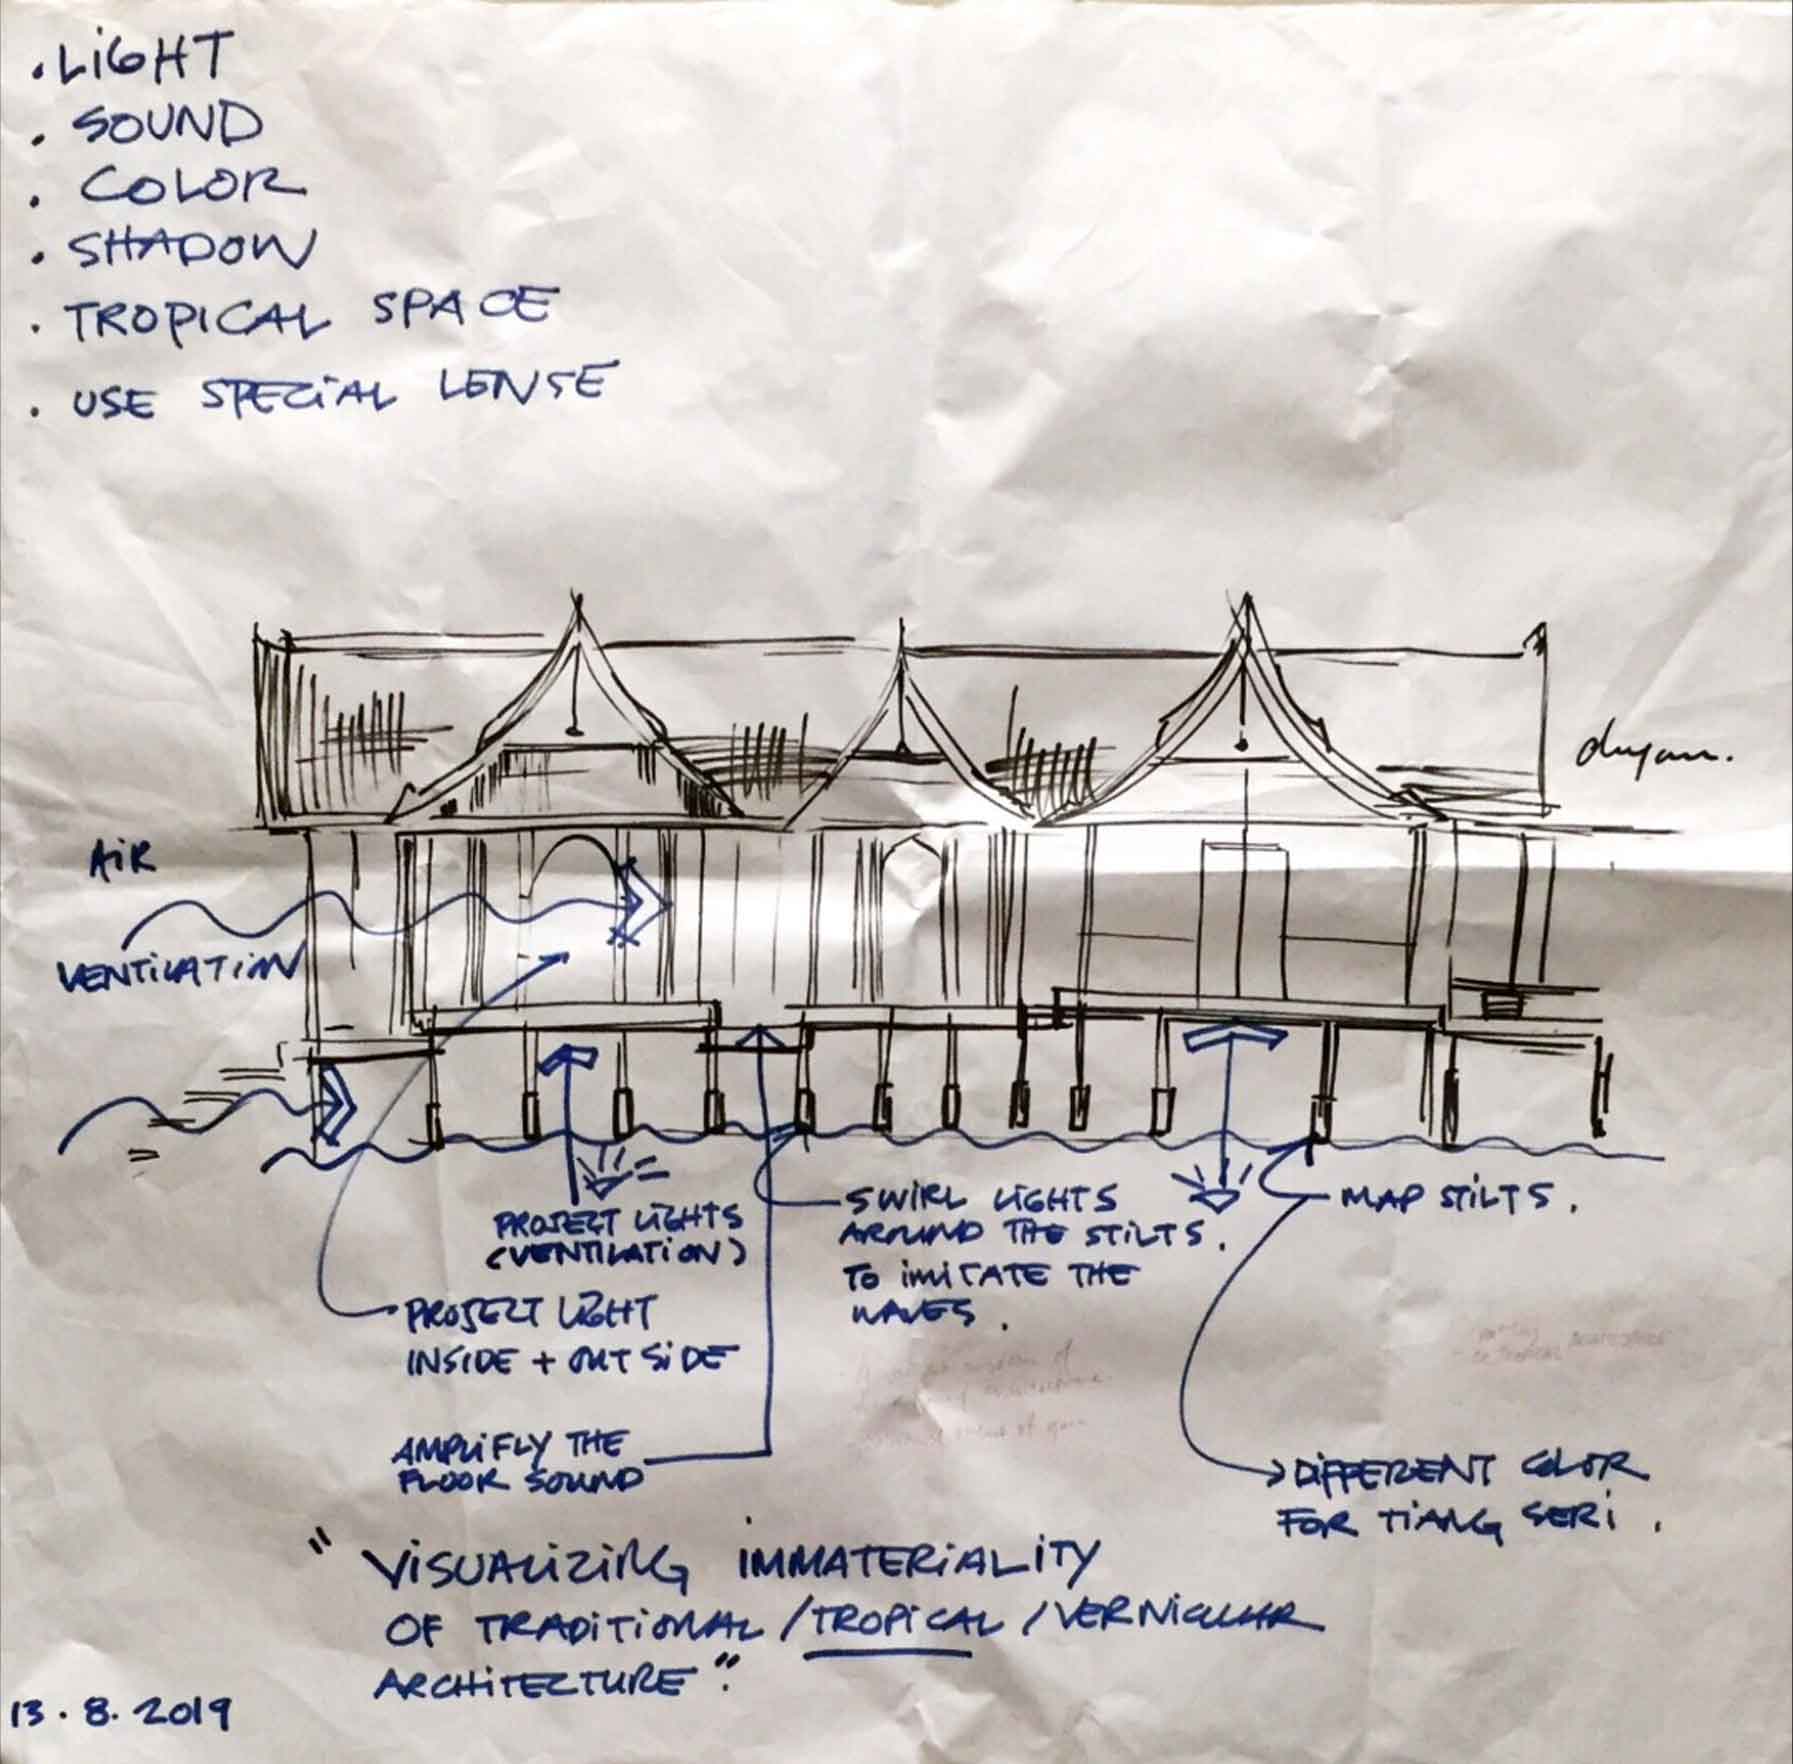 . LiGHT
. SOUND
. COLOR
. SHADOW
. TROPICAL SPACE
. USE SPECiAL LENSE
AiR
VENTiLATiON
PROJECT LiGHTS
(VENTILATiON)
PROJECT LiGHT
INSiDE + OUTSiDE
AMPLiFLY THE
FLOOR SOUND
SWiRL LiGHTS
AROUND THE STiLTS.
TO iMiTATE THE
WAVES.
MAP STiLTS.
DiFFERENT COLOR
FOR TiANG SERi.
"ViSUALiZiNG IMMATERiALiTY
OF TRADiTiONAL / TROPiCAL / VERNiCULAR
ARCHiTECTURE".
13.8.2019